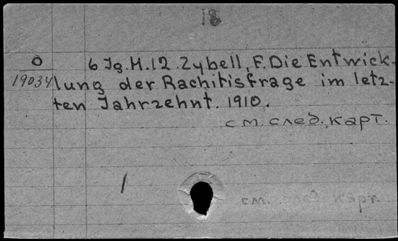 18
O 6 Jg. H.12. Zybell, F. Die Entwick-
19034 lung der Rachitisfrage im letz-
ten Jahrzehnt. 1910.
см. след. карт.
1
см. карт.